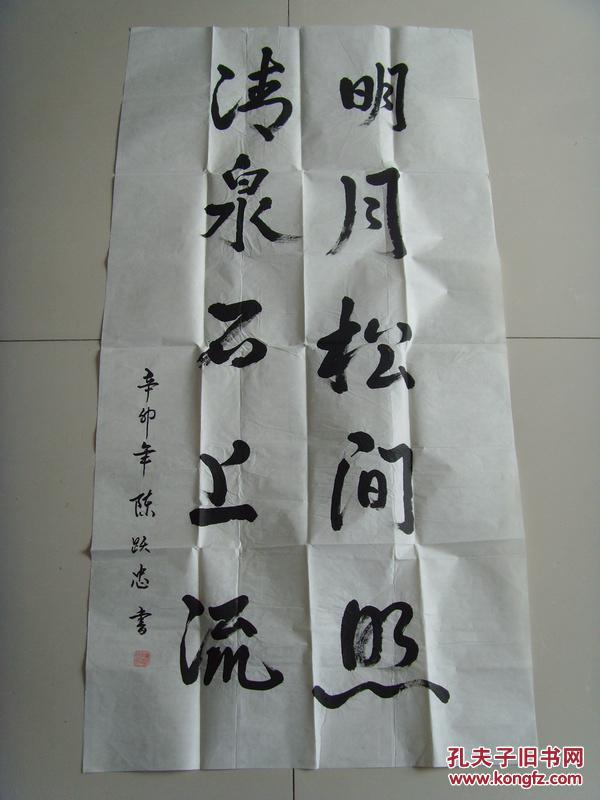 明月松间照
清泉石上流
辛卯年 陈跃忠 书
孔夫子旧书网
www.kongfz.com